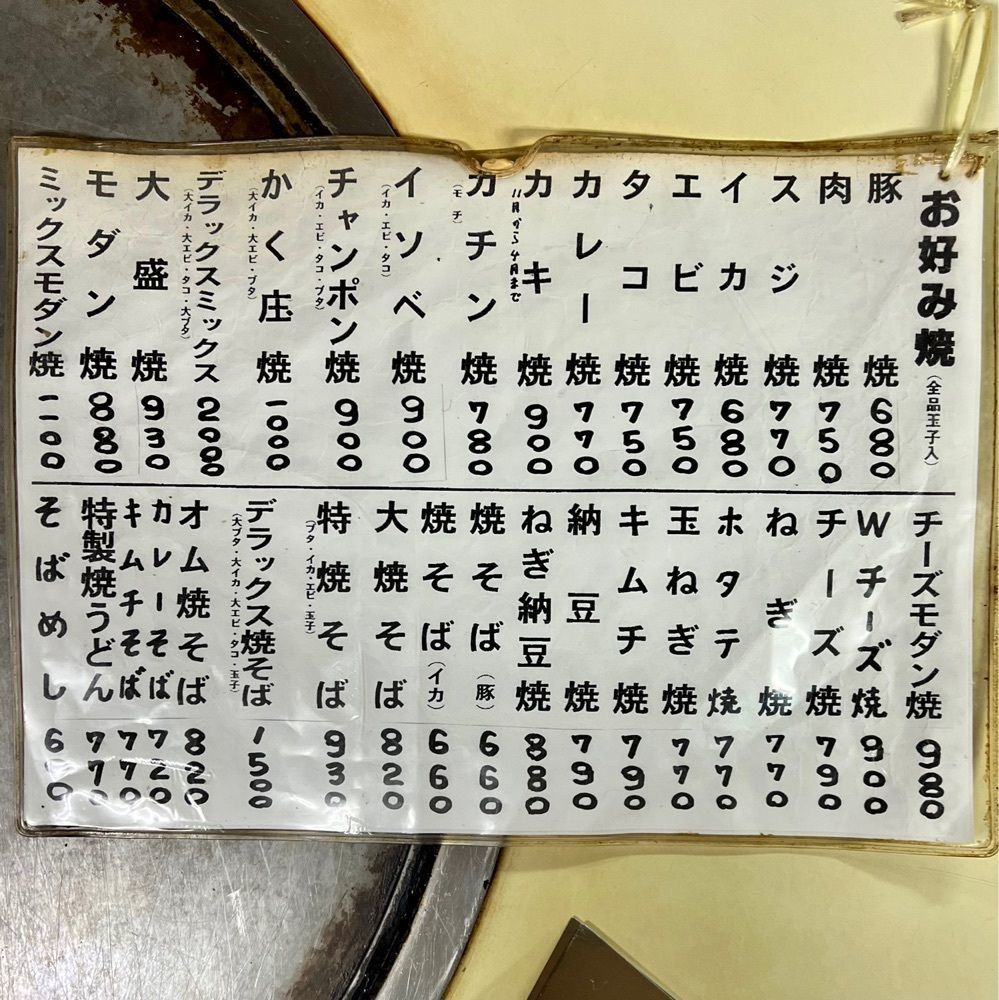 お好み焼(全品玉子入)
豚焼 680
肉焼 750
スジ焼 770
イカ焼 680
エビ焼 750
タコ焼 750
カレー焼 770
カキ焼 900
11月から4月まで
カチン焼 780
(モチ)
イソベ焼 900
(イカ・エビ・タコ)
チャンポン焼 900
(イカ・エビ・タコ・ブタ)
かく庄焼 1000
(大イカ・大エビ・ブタ)
デラックスミックス 2000
(大イカ・大エビ・タコ・大ブタ)
大盛焼 930
モダン焼 880
ミックスモダン焼 1100
チーズモダン焼 980
Wチーズ焼 900
チーズ焼 790
ねぎ焼 770
ホタテ焼 770
玉ねぎ焼 770
キムチ焼 790
納豆焼 790
ねぎ納豆焼 880
焼そば(豚) 660
焼そば(イカ) 660
大焼そば 820
特焼そば 930
(ブタ・イカ・エビ・玉子)
デラックス焼そば 1500
(大ブタ・大イカ・大エビ・タコ・玉子)
オム焼そば 820
カレーそば 720
キムチそば 770
特製焼うどん 770
そばめし